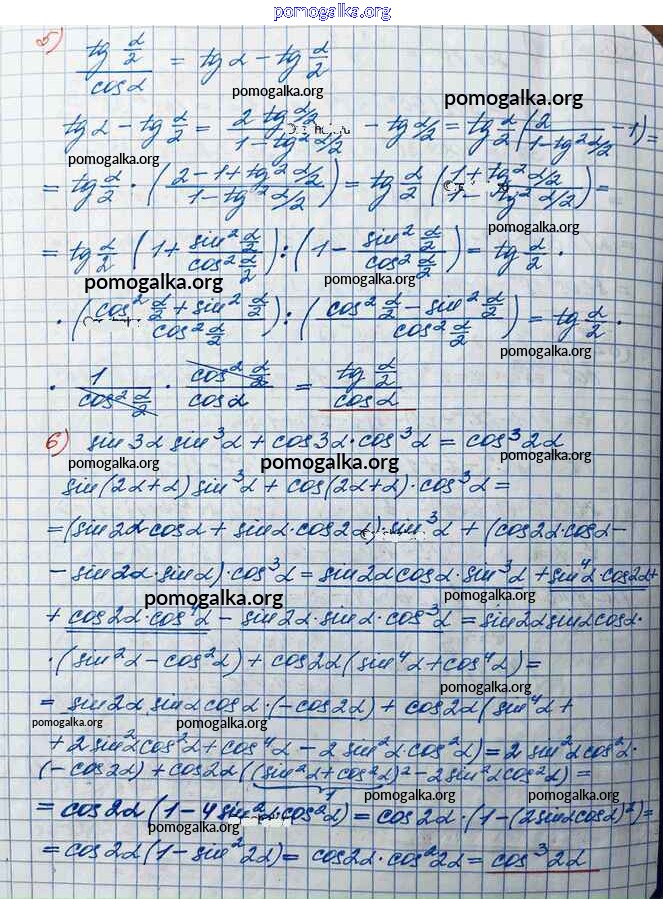 pomogalka.org
5) tg α/2 / cos α = tg α - tg α/2
pomogalka.org
pomogalka.org
tg α - tg α/2 = 2 tg α/2 / 1 - tg² α/2 - tg α/2 = tg α/2 (2 / 1 - tg² α/2 - 1) =
pomogalka.org
= tg α/2 · (2 - 1 + tg² α/2 / 1 - tg² α/2) = tg α/2 (1 + tg² α/2 / 1 - tg² α/2) =
pomogalka.org
= tg α/2 (1 + sin² α/2 / cos² α/2) : (1 - sin² α/2 / cos² α/2) = tg α/2 ·
pomogalka.org
pomogalka.org
· (cos² α/2 + sin² α/2 / cos² α/2) : (cos² α/2 - sin² α/2 / cos² α/2) = tg α/2 ·
pomogalka.org
· 1 / cos² α/2 · cos² α/2 / cos α = tg α/2 / cos α
6) sin 3α sin³ α + cos 3α · cos³ α = cos³ 2α
pomogalka.org
pomogalka.org
pomogalka.org
sin(2α + α) sin³ α + cos(2α + α) · cos³ α =
= (sin 2α cos α + sin α · cos 2α) · sin³ α + (cos 2α · cos α -
- sin 2α · sin α) · cos³ α = sin 2α cos α · sin³ α + sin⁴ α · cos 2α +
pomogalka.org
+ cos 2α · cos⁴ α - sin 2α · sin α · cos³ α = sin 2α sin α cos α ·
· (sin² α - cos² α) + cos 2α (sin⁴ α + cos⁴ α) =
pomogalka.org
= sin 2α sin α cos α · (-cos 2α) + cos 2α (sin⁴ α +
pomogalka.org
pomogalka.org
+ 2 sin² α cos² α + cos⁴ α - 2 sin² α · cos² α) = 2 sin² α cos² α ·
(-cos 2α) + cos 2α ((sin² α + cos² α)² - 2 sin² α cos² α) =
1
pomogalka.org
pomogalka.org
= cos 2α (1 - 4 sin² α · cos² α) = cos 2α · (1 - (2 sin α cos α)²) =
pomogalka.org
= cos 2α (1 - sin² 2α) = cos 2α · cos² 2α = cos³ 2α
pomogalka.org